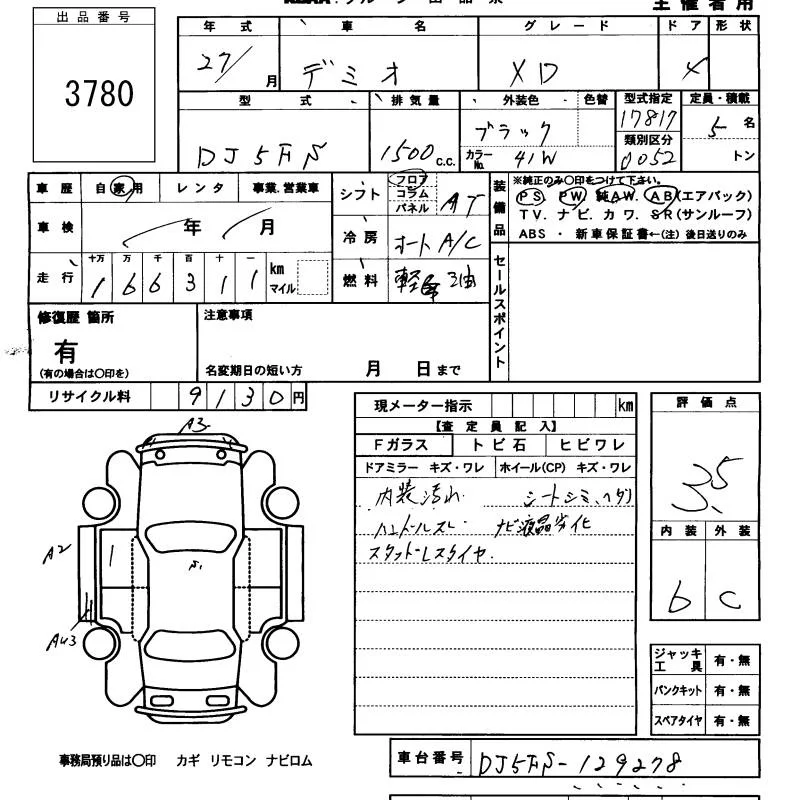 出品番号
3780
年式 車名 グレード ドア 形状
27/ 月 デミオ XD 4
型式 排気量 外装色・色替 型式指定 定員・積載
DJ5FS 1500c.c. ブラック 17817 5名
カラーNo. 41W 類別区分 0052 トン
車歴 自家用 レンタ 事業.営業車
シフト フロア コラム パネル AT
装備品 ※純正のみ○印をつけて下さい。
PS PW. 純AW. AB(エアバック)
TV. ナビ. カワ. SR(サンルーフ)
ABS ・ 新車保証書←(注) 後日送りのみ
車検 年 月
冷房 オート A/C
走行 十万 万 千 百 十 一
166311 km マイル
燃料 軽油
セールスポイント
修復歴 箇所
有
(有の場合は○印を)
注意事項
名変期日の短い方 月 日まで
リサイクル料 9130円
現メーター指示 km
【査定員記入】
Fガラス トビ石 ヒビワレ
ドアミラー キズ・ワレ ホイール(CP) キズ・ワレ
内装汚れ シートシミ、ヘタリ
ハンドルスレ ナビ液晶劣化
スタットレスタイヤ.
評価点
3.5
内装 外装
b C
A3
A2
S1
ジャッキ工具 有・無
パンクキット 有・無
スペアタイヤ 有・無
事務局預り品は○印 カギ リモコン ナビロム
車台番号 DJ5FS-129278